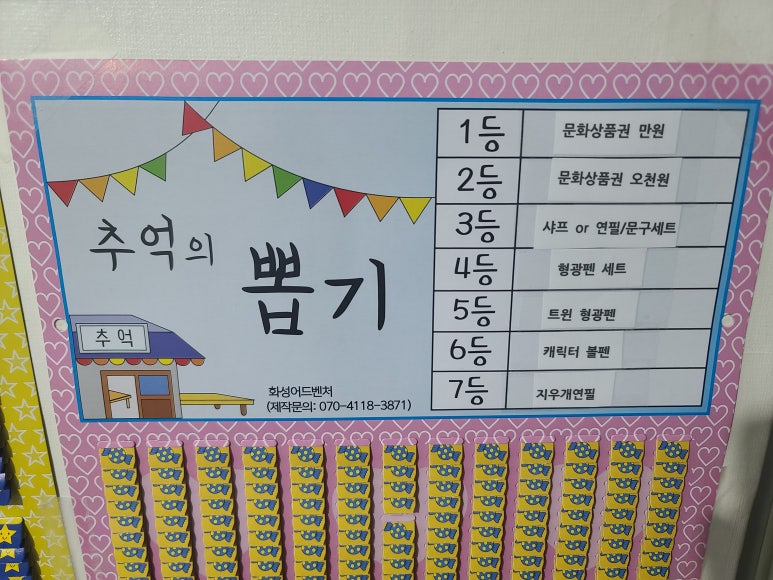 추억의
뽑기
추억
화성어드벤처
(제작문의: 070-4118-3871)
1등 문화상품권 만원
2등 문화상품권 오천원
3등 샤프 or 연필/문구세트
4등 형광펜 세트
5등 트윈 형광펜
6등 캐릭터 볼펜
7등 지우개연필